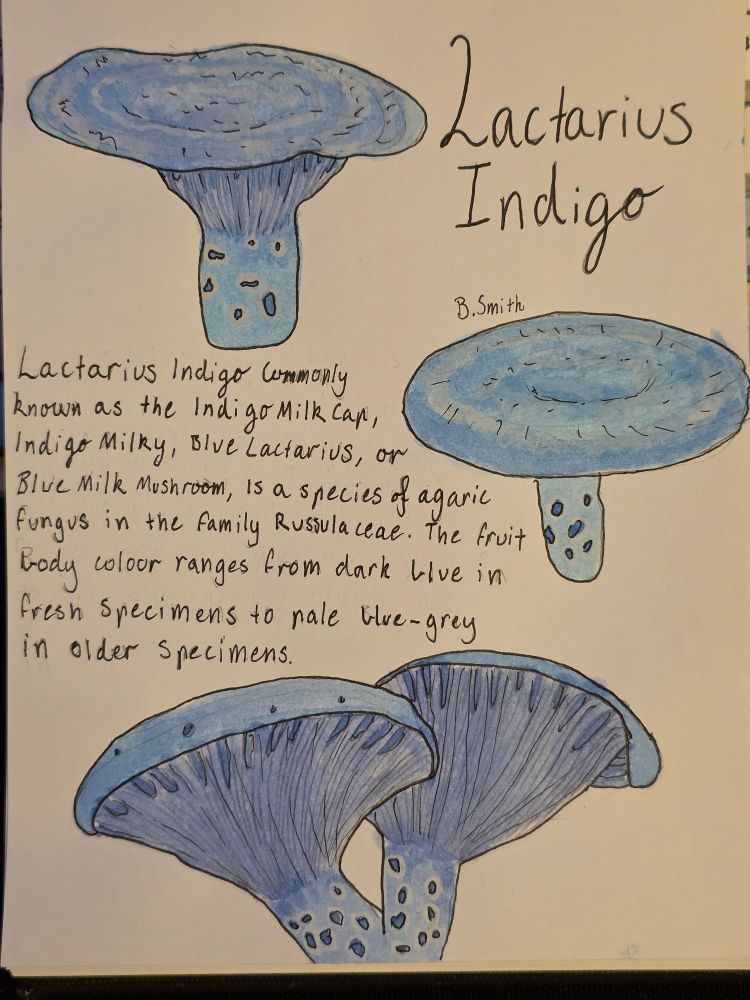 Lactarius
Indigo
B. Smith
Lactarius Indigo Commonly
known as the Indigo Milk Cap,
Indigo Milky, Blue Lactarius, or
Blue Milk Mushroom, is a species of agaric
fungus in the family Russulaceae. The fruit
Body colour ranges from dark blue in
fresh specimens to pale blue-grey
in older specimens.